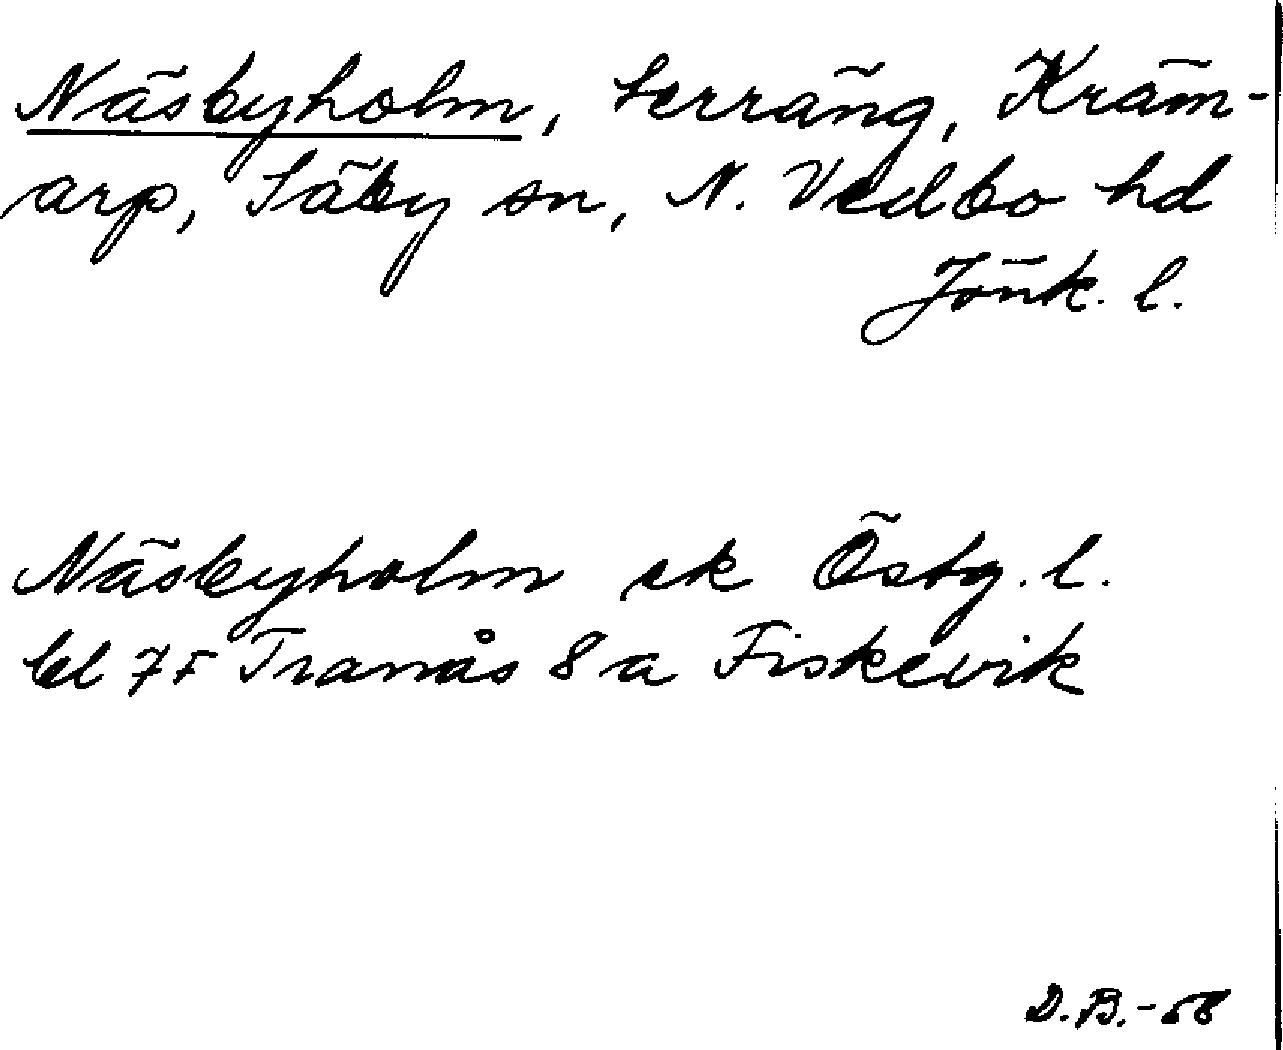 Näsbyholm, terräng, Kräm-
arp, Säby sn, N. Vedbo hd
Jönk. l.
Näsbyholm ek Östg. l.
bl 7F Tranås 8a Fiskevik
D.B.-58